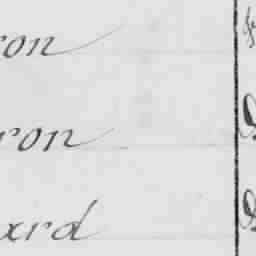 ron
ron
ard